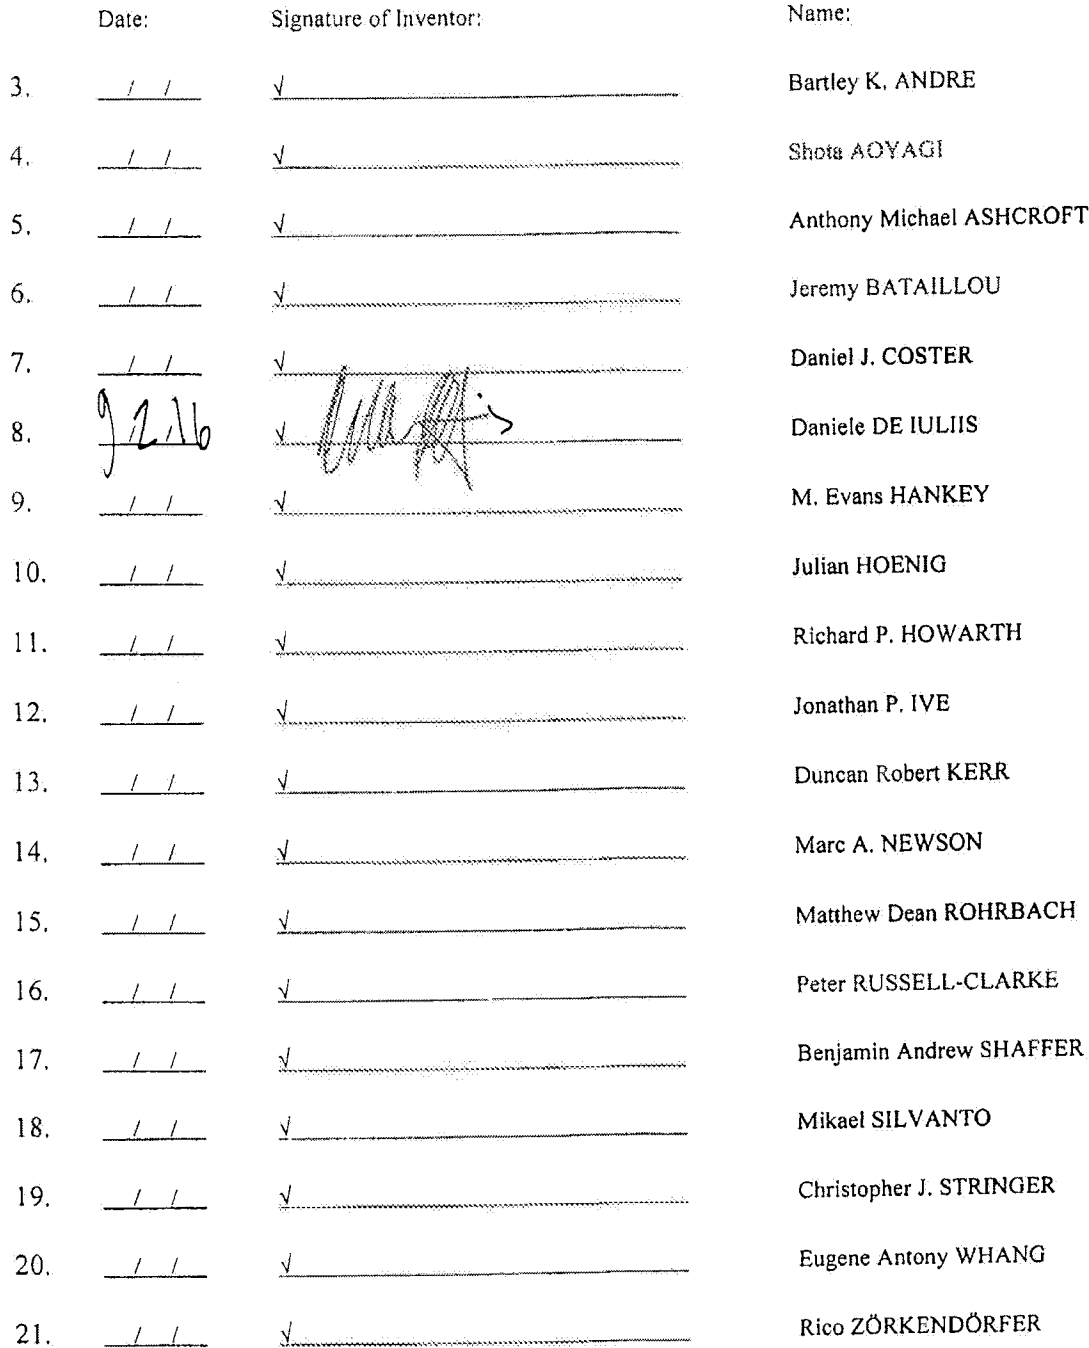 Date: Signature of Inventor: Name:
3. / / √ Bartley K. ANDRE
4. / / √ Shota AOYAGI
5. / / √ Anthony Michael ASHCROFT
6. / / √ Jeremy BATAILLOU
7. / / √ Daniel J. COSTER
8. 9/2/16 √ Daniele DE IULIIS
9. / / √ M. Evans HANKEY
10. / / √ Julian HOENIG
11. / / √ Richard P. HOWARTH
12. / / √ Jonathan P. IVE
13. / / √ Duncan Robert KERR
14. / / √ Marc A. NEWSON
15. / / √ Matthew Dean ROHRBACH
16. / / √ Peter RUSSELL-CLARKE
17. / / √ Benjamin Andrew SHAFFER
18. / / √ Mikael SILVANTO
19. / / √ Christopher J. STRINGER
20. / / √ Eugene Antony WHANG
21. / / √ Rico ZÖRKENDÖRFER